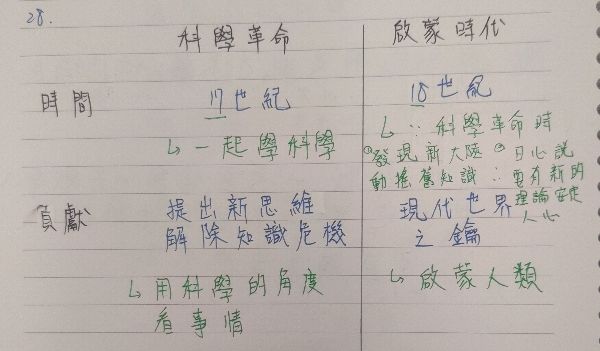 28.
科學革命
啟蒙時代
時間
17世紀
18世紀
↳一起學科學
↳∵科學革命時
①發現新大陸②日心說
動搖舊知識∴要有新的
理論安定
人心
貢獻
提出新思維
解除知識危機
現代世界
之鑰
↳用科學的角度
看事情
↳啟蒙人類